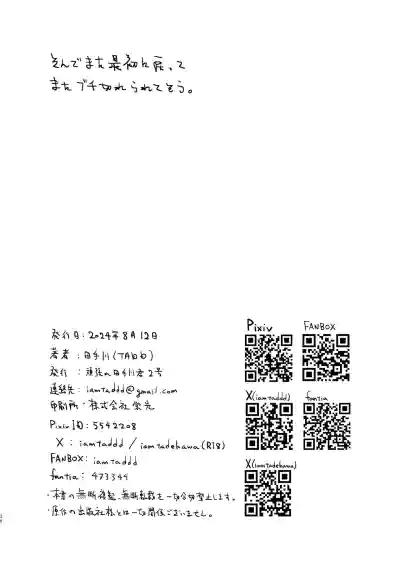 そんでまた最初に戻って
またブチ切れられてそう。
発行日：2024年8月12日
著者：日手川(TAbb)
発行：日手川産2号
連絡先：iamtaddd@gmail.com
印刷所：株式会社栄光
Pixiv ID：5542208
X：iamtaddd / iamtadehawa(R18)
FANBOX：iamtaddd
fantia：473344
・本書の無断複製、無断転載を一切禁止します。
・原作の出版社様とは一切関係ございません。
Pixiv
FANBOX
X(iamtaddd)
fantia
X(iamtadehawa)